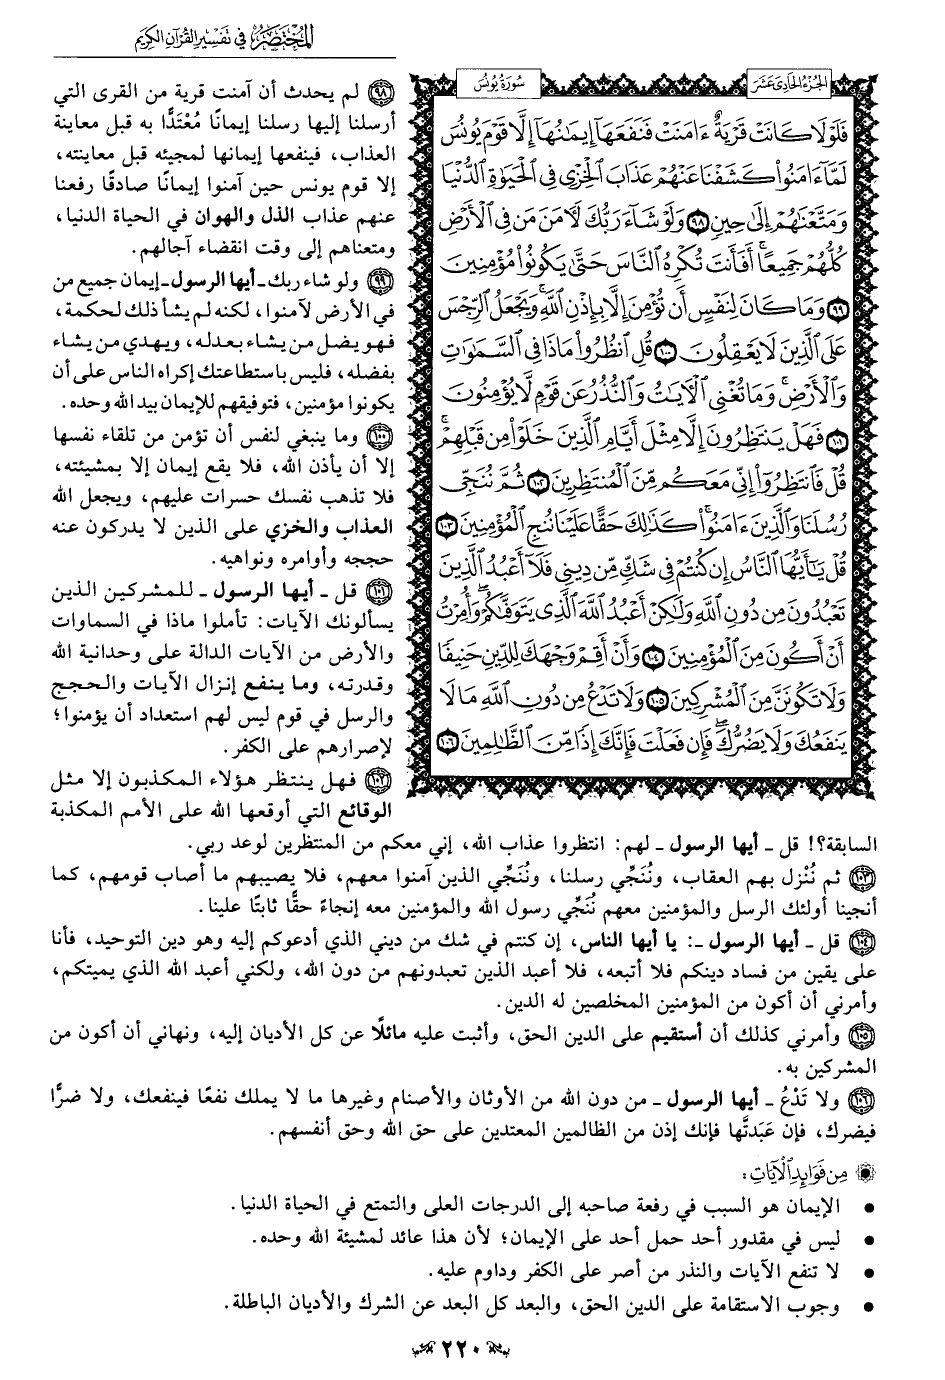 المختصر في تفسير القرآن الكريم
الجزء الحادي عشر
سورة يونس
فَلَوْلَا كَانَتْ قَرْيَةٌ ءَامَنَتْ فَنَفَعَهَآ إِيمَٰنُهَآ إِلَّا قَوْمَ يُونُسَ
لَمَّآ ءَامَنُوا۟ كَشَفْنَا عَنْهُمْ عَذَابَ ٱلْخِزْىِ فِى ٱلْحَيَوٰةِ ٱلدُّنْيَا
وَمَتَّعْنَٰهُمْ إِلَىٰ حِينٍ ٩٨ وَلَوْ شَآءَ رَبُّكَ لَءَامَنَ مَن فِى ٱلْأَرْضِ
كُلُّهُمْ جَمِيعًا ۚ أَفَأَنتَ تُكْرِهُ ٱلنَّاسَ حَتَّىٰ يَكُونُوا۟ مُؤْمِنِينَ
٩٩ وَمَا كَانَ لِنَفْسٍ أَن تُؤْمِنَ إِلَّا بِإِذْنِ ٱللَّهِ ۚ وَيَجْعَلُ ٱلرِّجْسَ
عَلَى ٱلَّذِينَ لَا يَعْقِلُونَ ١٠٠ قُلِ ٱنظُرُوا۟ مَاذَا فِى ٱلسَّمَٰوَٰتِ
وَٱلْأَرْضِ ۚ وَمَا تُغْنِى ٱلْءَايَٰتُ وَٱلنُّذُرُ عَن قَوْمٍ لَّا يُؤْمِنُونَ
١٠١ فَهَلْ يَنتَظِرُونَ إِلَّا مِثْلَ أَيَّامِ ٱلَّذِينَ خَلَوْا۟ مِن قَبْلِهِمْ ۚ
قُلْ فَٱنتَظِرُوٓا۟ إِنِّى مَعَكُم مِّنَ ٱلْمُنتَظِرِينَ ١٠٢ ثُمَّ نُنَجِّى
رُسُلَنَا وَٱلَّذِينَ ءَامَنُوا۟ ۚ كَذَٰلِكَ حَقًّا عَلَيْنَا نُنجِ ٱلْمُؤْمِنِينَ ١٠٣
قُلْ يَٰٓأَيُّهَا ٱلنَّاسُ إِن كُنتُمْ فِى شَكٍّ مِّن دِينِى فَلَآ أَعْبُدُ ٱلَّذِينَ
تَعْبُدُونَ مِن دُونِ ٱللَّهِ وَلَٰكِنْ أَعْبُدُ ٱللَّهَ ٱلَّذِى يَتَوَفَّىٰكُمْ ۖ وَأُمِرْتُ
أَنْ أَكُونَ مِنَ ٱلْمُؤْمِنِينَ ١٠٤ وَأَنْ أَقِمْ وَجْهَكَ لِلدِّينِ حَنِيفًا
وَلَا تَكُونَنَّ مِنَ ٱلْمُشْرِكِينَ ١٠٥ وَلَا تَدْعُ مِن دُونِ ٱللَّهِ مَا لَا
يَنفَعُكَ وَلَا يَضُرُّكَ ۖ فَإِن فَعَلْتَ فَإِنَّكَ إِذًا مِّنَ ٱلظَّٰلِمِينَ ١٠٦
٩٨ لم يحدث أن آمنت قرية من القرى التي
أرسلنا إليها رسلنا إيمانًا مُعْتَدًّا به قبل معاينة
العذاب، فينفعها إيمانها لمجيئه قبل معاينته،
إلا قوم يونس حين آمنوا إيمانًا صادقًا رفعنا
عنهم عذاب الذل والهوان في الحياة الدنيا،
ومتعناهم إلى وقت انقضاء آجالهم.
٩٩ ولو شاء ربك ـ أيها الرسول ـ إيمان جميع من
في الأرض لآمنوا، لكنه لم يشأ ذلك لحكمة،
فهو يضل من يشاء بعدله، ويهدي من يشاء
بفضله، فليس باستطاعتك إكراه الناس على أن
يكونوا مؤمنين، فتوفيقهم للإيمان بيد الله وحده.
١٠٠ وما ينبغي لنفس أن تؤمن من تلقاء نفسها
إلا أن يأذن الله، فلا يقع إيمان إلا بمشيئته،
فلا تذهب نفسك حسرات عليهم، ويجعل الله
العذاب والخزي على الذين لا يدركون عنه
حججه وأوامره ونواهيه.
١٠١ قل ـ أيها الرسول ـ للمشركين الذين
يسألونك الآيات: تأملوا ماذا في السماوات
والأرض من الآيات الدالة على وحدانية الله
وقدرته، وما ينفع إنزال الآيات والحجج
والرسل في قوم ليس لهم استعداد أن يؤمنوا؛
لإصرارهم على الكفر.
١٠٢ فهل ينتظر هؤلاء المكذبون إلا مثل
الوقائع التي أوقعها الله على الأمم المكذبة
السابقة؟! قل ـ أيها الرسول ـ لهم: انتظروا عذاب الله، إني معكم من المنتظرين لوعد ربي.
١٠٣ ثم نُنْزل بهم العقاب، ونُنَجِّي رسلنا، ونُنَجِّي الذين آمنوا معهم، فلا يصيبهم ما أصاب قومهم، كما
أنجينا أولئك الرسل والمؤمنين معهم نُنَجِّي رسول الله والمؤمنين معه إنجاءً حقًّا ثابتًا علينا.
١٠٤ قل ـ أيها الرسول ـ: يا أيها الناس، إن كنتم في شك من ديني الذي أدعوكم إليه وهو دين التوحيد، فأنا
على يقين من فساد دينكم فلا أتبعه، فلا أعبد الذين تعبدونهم من دون الله، ولكني أعبد الله الذي يميتكم،
وأمرني أن أكون من المؤمنين المخلصين له الدين.
١٠٥ وأمرني كذلك أن أستقيم على الدين الحق، وأثبت عليه مائلًا عن كل الأديان إليه، ونهاني أن أكون من
المشركين به.
١٠٦ ولا تَدْعُ ـ أيها الرسول ـ من دون الله من الأوثان والأصنام وغيرها ما لا يملك نفعًا فينفعك، ولا ضرًّا
فيضرك، فإن عَبَدتَّها فإنك إذن من الظالمين المعتدين على حق الله وحق أنفسهم.
من فوائد الآيات:
• الإيمان هو السبب في رفعة صاحبه إلى الدرجات العلى والتمتع في الحياة الدنيا.
• ليس في مقدور أحد حمل أحد على الإيمان؛ لأن هذا عائد لمشيئة الله وحده.
• لا تنفع الآيات والنذر من أصر على الكفر وداوم عليه.
• وجوب الاستقامة على الدين الحق، والبعد كل البعد عن الشرك والأديان الباطلة.
٢٢٠